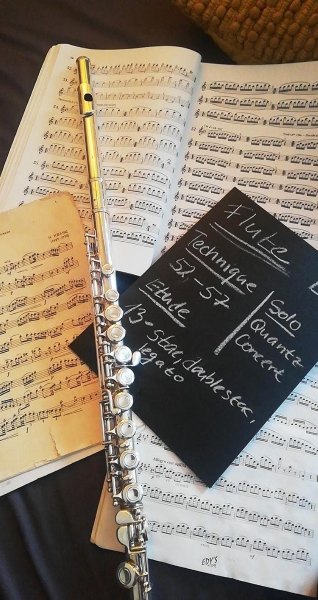 Flute
Technique
52-57
Etude
13- Stac, doublestac,
legato
Solo
Quantz
Concert
EDY'S